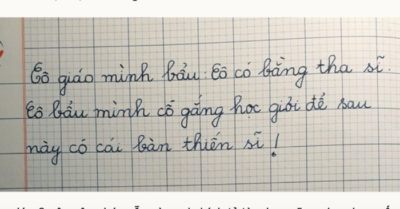 Cô giáo mình bẩu: Cô có bằng tha sĩ.
Cô bẩu mình cố gắng học giỏi để sau
này có cái bàn thiến sĩ!